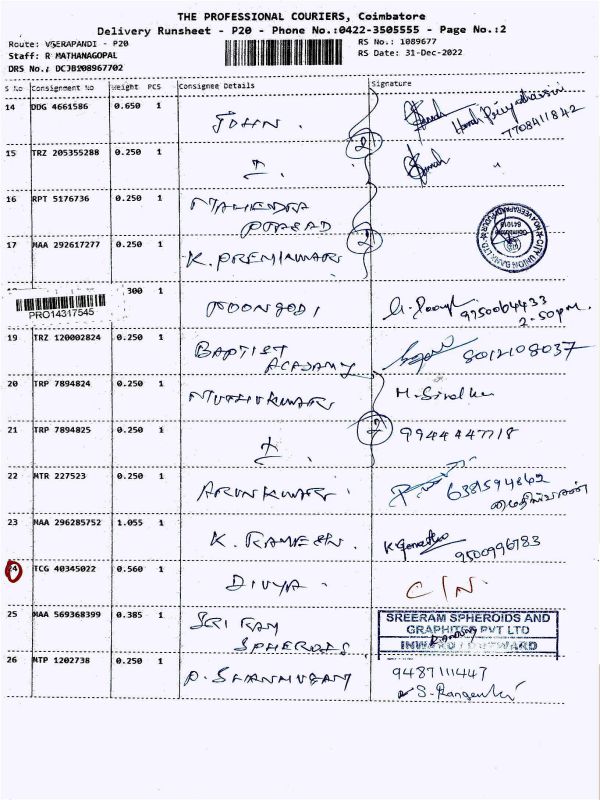 THE PROFESSIONAL COURIERS, Coimbatore
Delivery Runsheet - P20 - Phone No.:0422-3505555 - Page No.:2
Route: VEERAPANDI - P20
RS No.: 1089677
Staff: R MATHANAGOPAL
RS Date: 31-Dec-2022
DRS No.: DCJB108967702
S No Consignment No Weight PCS Consignee Details Signature
14 DDG 4661586 0.650 1 JOHN.
7708411842
15 TRZ 205355288 0.250 1
2
16 RPT 5176736 0.250 1 MAHENDRA
PRASAD
CITY UNION BANK LTD.
17 MAA 292617277 0.250 1 K. PREMKUMAR
2
300 1 POONGODI
9750064433
2.50pm.
PRO14317545
19 TRZ 120002824 0.250 1 BAPTIST
ACADAMY
8012108037
20 TRP 7894824 0.250 1 MUTHUKUMAR
21 TRP 7894825 0.250 1
2
9944447718
22 MTR 227523 0.250 1 ARUNKUMAR.
6381594862
23 MAA 296285752 1.055 1 K. RAMESH.
9500996783
24 TCG 40345022 0.560 1 DIVYA. C/N.
25 MAA 569368399 0.385 1 SRI RAM
SPHEROIDS
SREERAM SPHEROIDS AND
GRAPHITES PVT LTD
INWARD / OUTWARD
26 NTP 1202738 0.250 1 P. SHANMUGAM
9487111447